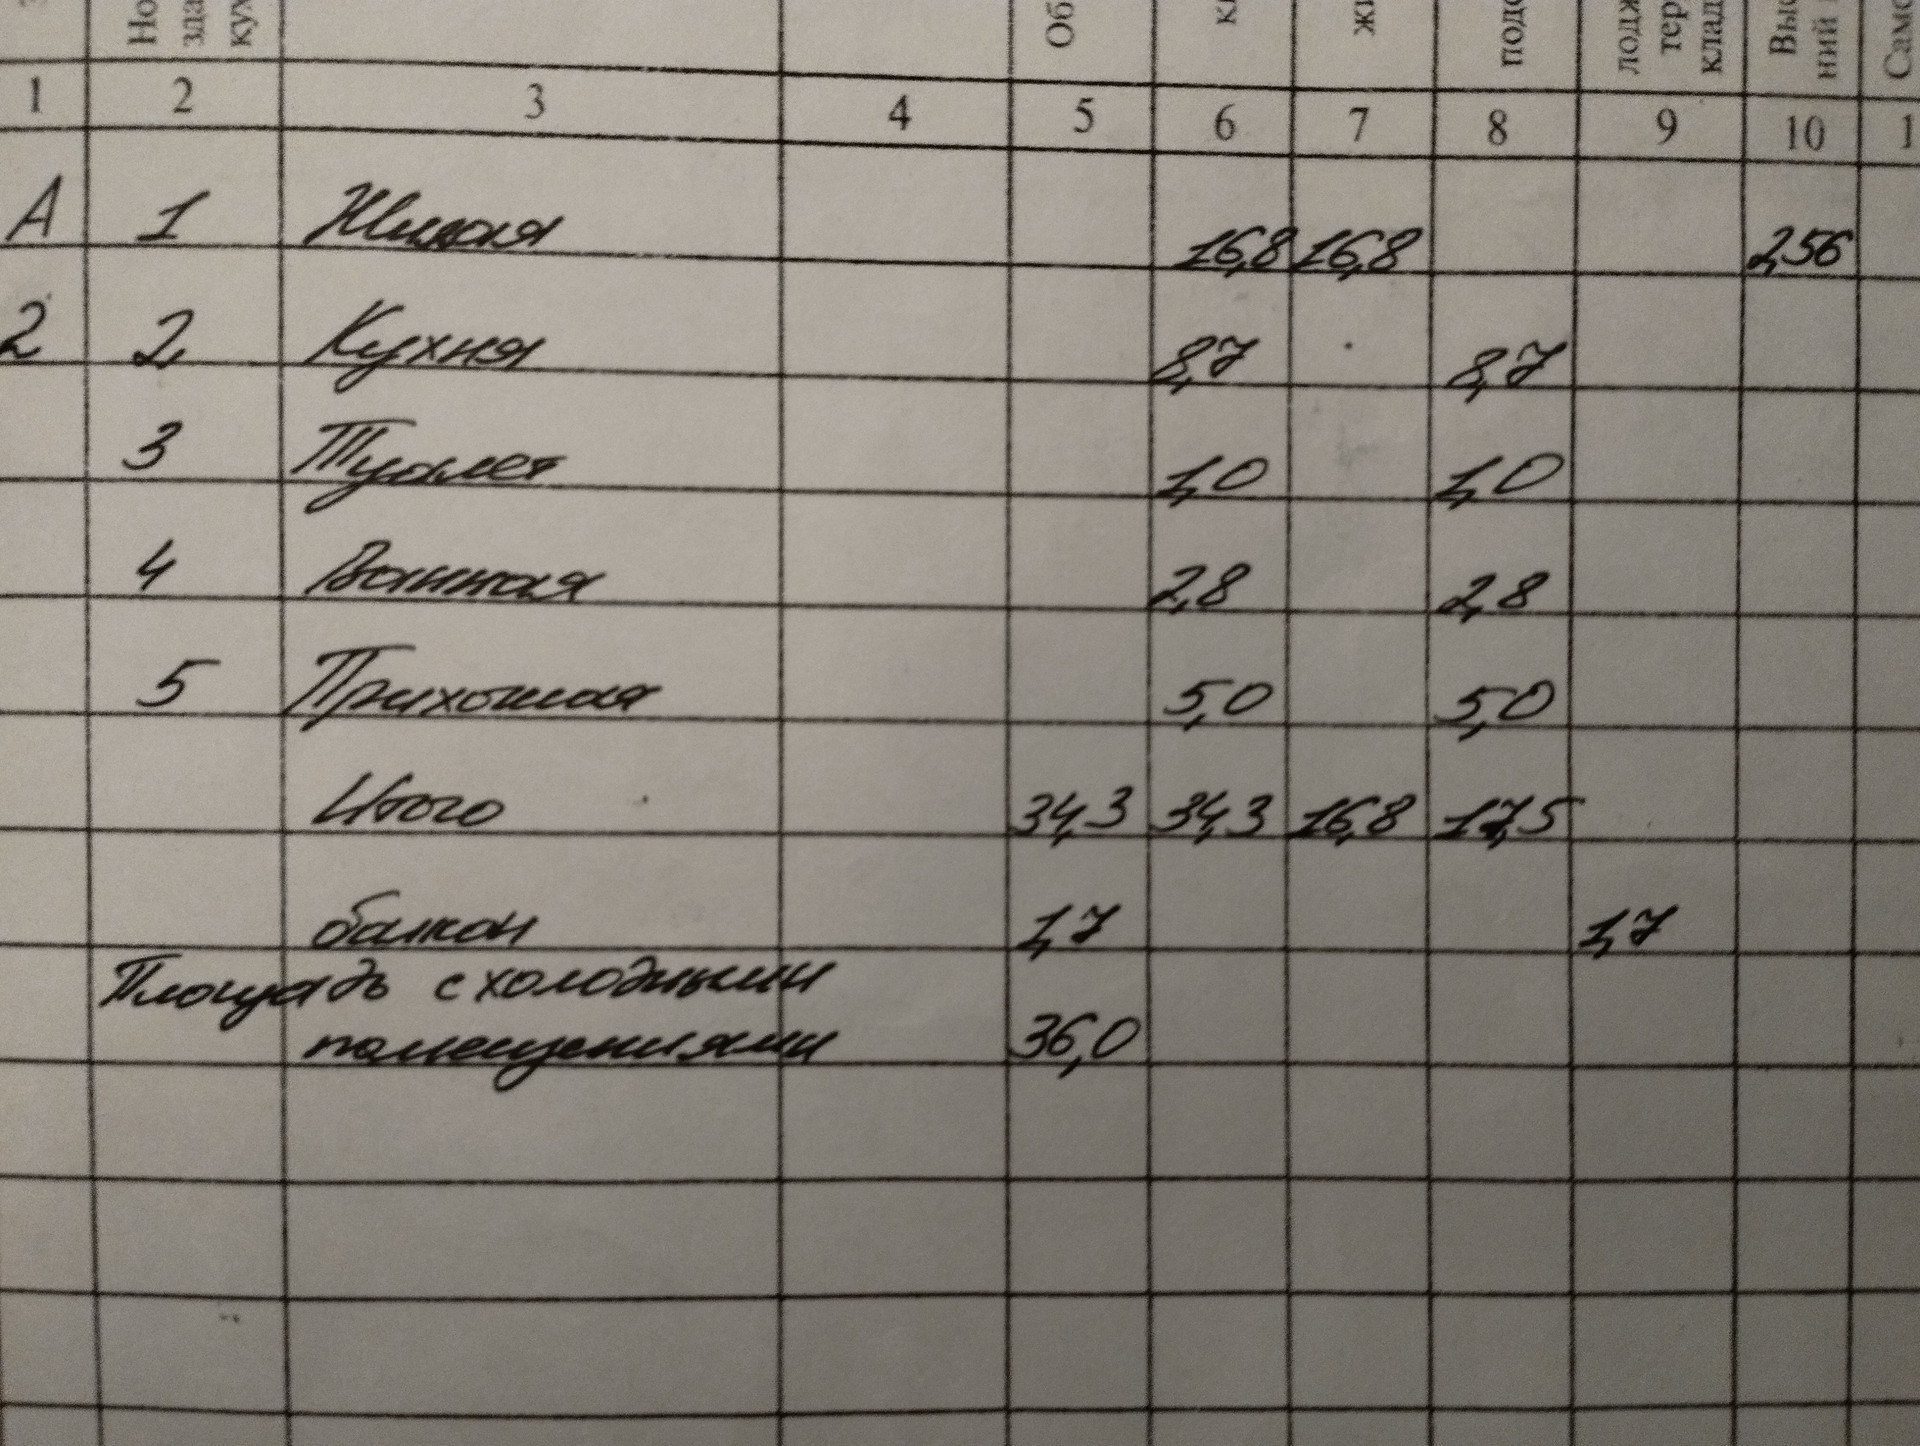 Но
зда
кух
Об
жи
подс
лодж
тер
клад
Выс
ний
Само
1 2 3 4 5 6 7 8 9 10 1
А 1 Жилая 16,8 16,8 2,56
2 2 Кухня 8,7 8,7
3 Туалет 1,0 1,0
4 Ванная 2,8 2,8
5 Прихожая 5,0 5,0
Итого 34,3 34,3 16,8 17,5
балкон 1,7 1,7
Площадь с холодными
помещениями 36,0